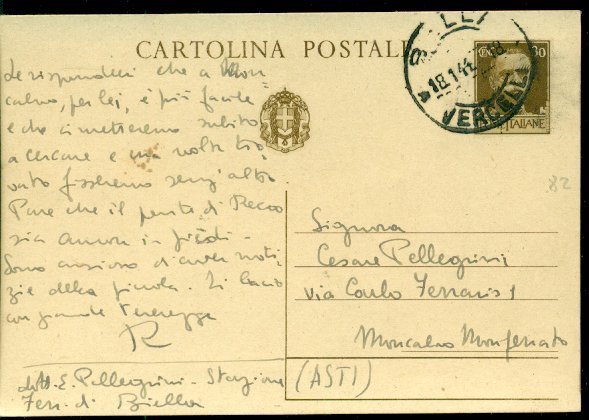 CARTOLINA POSTALE
BIELLA
18.1.41
VERCELLI
CENT. 30
ITALIANE
Le risponderei che a Mon-
calvo, per lei, è più facile
e che ci metteremo subito
a cercare e una volta tro-
vato fisseremo senz'altro
Pare che il ponte di Recco
sia ancora in piedi -
Sono ansioso di aver noti-
zie della piccola. Ti bacio
con grande tenerezza
R
dott. E. Pellegrini - Stazione
Ferr. di Biella
82
Signora
Cesare Pellegrini
Via Carlo Ferraris 1
Moncalvo Monferrato
(ASTI)